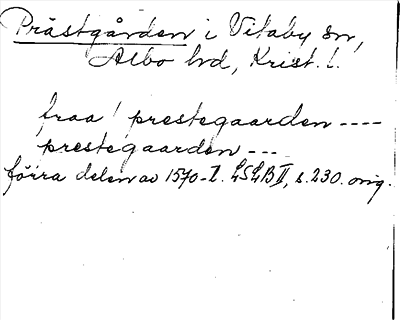 Prästgården i Vitaby sn,
Albo hd, Krist. l.
fraa prestegaarden ----
prestegaarden ---
förra delen av 1570-t. LSLB II, s. 230. orig.